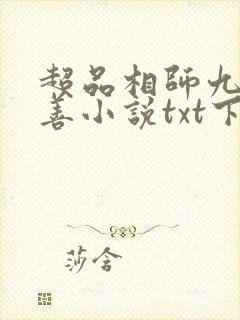 超品相師九
善小說txt下
莎含